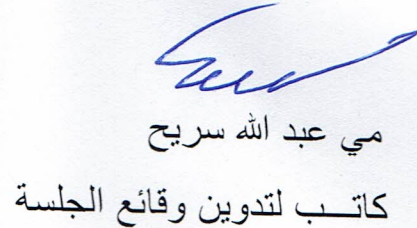 مي عبد الله سريح
كاتـــب لتدوين وقائع الجلسة